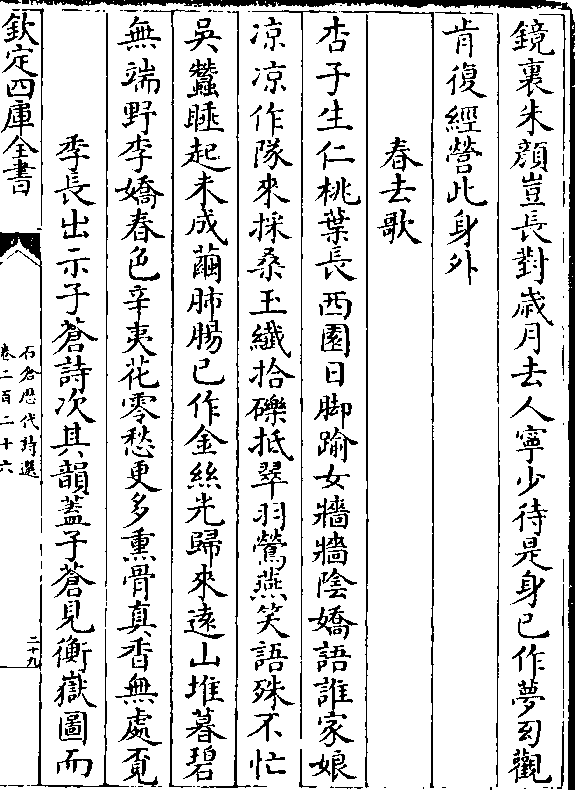 鏡裏朱顔豈長對歲月去人寧少待是身已作夢幻觀
肯復經營此身外
春去歌
杏子生仁桃葉長西園日脚踰女牆牆陰嬌語誰家娘
凉凉作隊來採桑玉纖拾礫抵翠羽鶯燕笑語殊不忙
吳蠶睡起未成繭肺腸已作金絲光歸來遠山堆暮碧
無端野李嬌春色辛夷花零愁更多熏骨真香無處覔
季長出示子蒼詩次其韻蓋子蒼見衡嶽圖而
欽定四庫全書
石倉歴代詩選
卷二百二十六
二十九